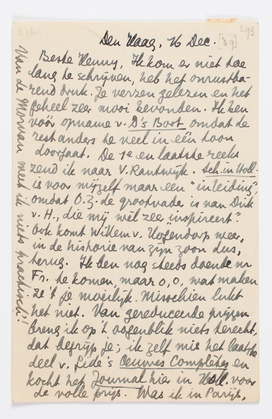 Den Haag, 16 Dec. [39]
Beste Henny, Ik kom er niet toe
lang te schrijven, heb het onrustba-
rend druk. Je verzen gelezen en het
geheel zeer mooi bevonden. Ik ben
vóór opname v. D's Boot omdat de
rest anders te veel in één toon
doorgaat. De 1e en laatste reeks
zend ik naar v. Rantwijk. Sch. in Holl.
is voor mijzelf maar een "inleiding"
omdat O.Z. de grootvader is van Dirk
v. H., die mij wèl zeer "inspireert".
Ook komt Willem v. Hogendorp weer,
in de historie van zijn zoon dus,
terug. Ik ben nog steeds doende nr
Fr. te komen, maar o, o, wat maken
ze 't je moeilijk. Misschien lukt
het niet. Van gereduceerde prijzen
breng ik op 't oogenblik niets terecht,
dat begrijp je; ik zelf mis het laatste
deel v. Gide's Oeuvres Complètes en
kocht het Journal hier in Holl. voor
de volle prijs. Was ik in Parijs,
Van de Morvan weet ik niets practisch!